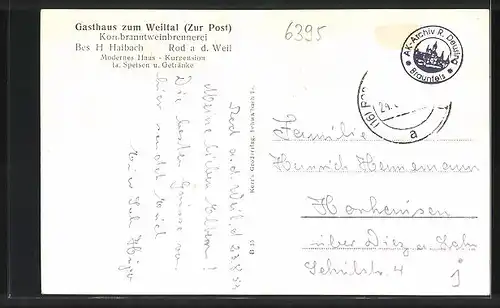 Gasthaus zum Weiltal (Zur Post)
Kornbranntweinbrennerei
Bes. H. Haibach Rod a. d. Weil
Modernes Haus - Kurpension
la. Speisen u. Getränke
6395
AK-Archiv R. Deusing
Braunfels
(16)
24.
a
Rod a. d. Weil 23.8.54
Meine lieben Eltern!
Die besten Grüsse von
hier sendet Euch
Euer
Familie
Heinrich Hennemann
über Diez a. Lahn
Schulstr. 4